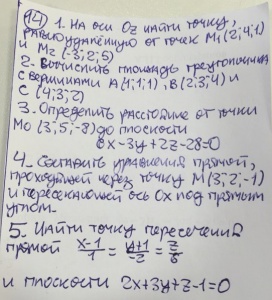 (14) 1. На оси Oz найти точку,
равноудалённую от точек M₁(2;4;1)
и M₂(-3;2;5)
2. Вычислить площадь треугольника
с вершинами A(1;1;1), B(2;3;4) и
C(4;3;2)
3. Определить расстояние от точки
M₀(3;5;-8) до плоскости
6x-3y+2z-28=0
4. Составить уравнения прямой,
проходящей через точку M(3;2;-1)
и пересекающей ось Ox под прямым
углом.
5. Найти точку пересечения
прямой (x-1)/1 = (y+1)/-2 = z/6
и плоскости 2x+3y+z-1=0